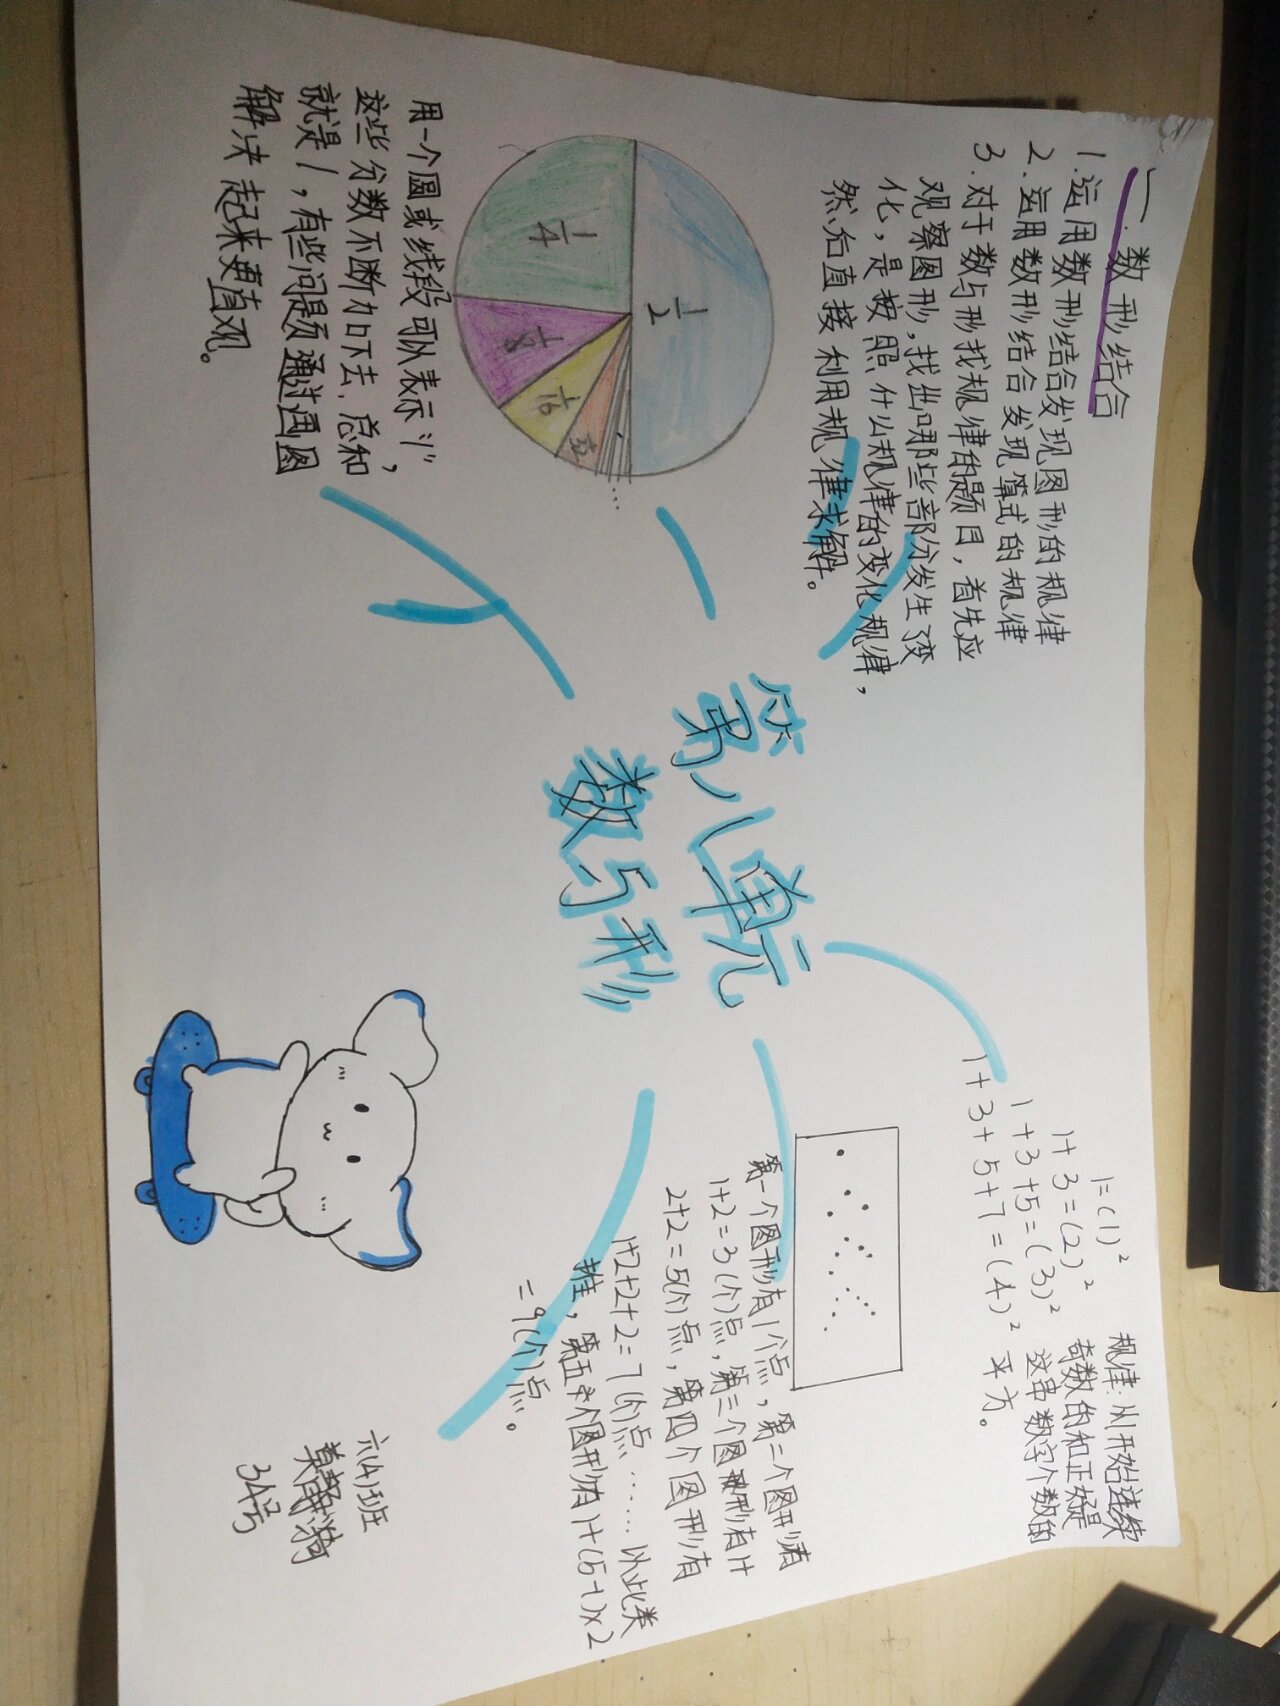 一.数形结合
1.运用数形结合发现图形的规律
2.运用数形结合发现算式的规律
3.对于数与形找规律的题目，首先应
观察图形，找出哪些部分发生了变
化，是按照什么规律的变化规律，
然后直接利用规律求解。
1/2
1/4
1/8
1/16
1/32
…
用一个圆或线段可以表示"1"，
这些分数不断加下去，总和
就是1，有些问题通过画图
解决起来更直观。
第八单元
数与形
1=(1)²
1+3=(2)²
1+3+5=(3)²
1+3+5+7=(4)²
规律：从1开始连续
奇数的和正好是
这串数字个数的
平方。
第一个图形有1个点，第二个图形有
1+2=3(个)点，第三个图形有1+
2+2=5(个)点，第四个图形有
1+2+2+2=7(个)点……以此类
推，第五个图形有1+(5-1)×2
=9(个)点。
六(4)班
34号